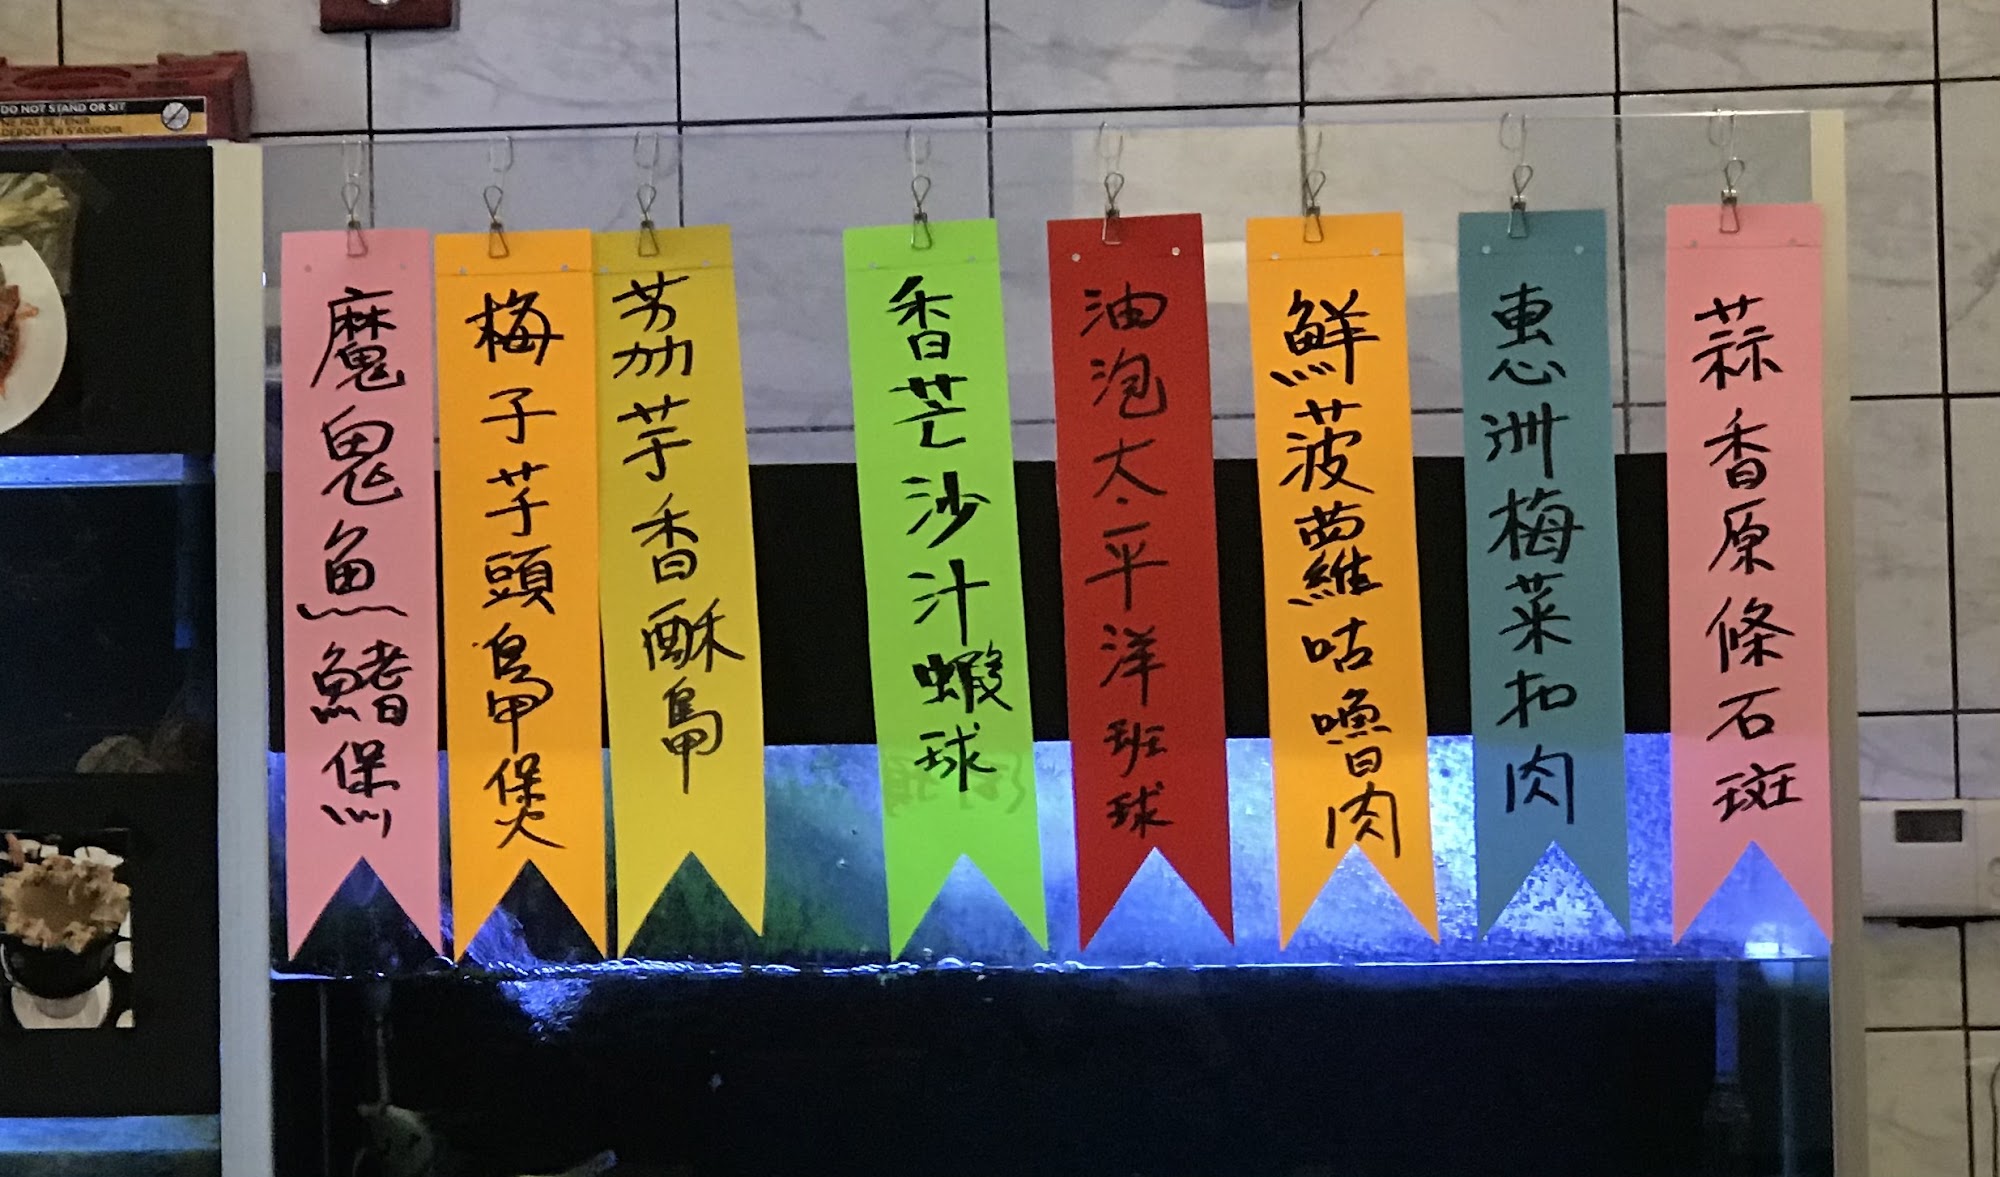 DO NOT STAND OR SIT
NE PAS SE TENIR
DEBOUT NI S'ASSEOIR
魔鬼魚鰭煲
梅子芋頭鴨煲
荔芋香酥鴨
香芒沙汁蝦球
油泡太平洋班球
鮮菠蘿咕嚕肉
惠洲梅菜扣肉
蒜香原條石斑